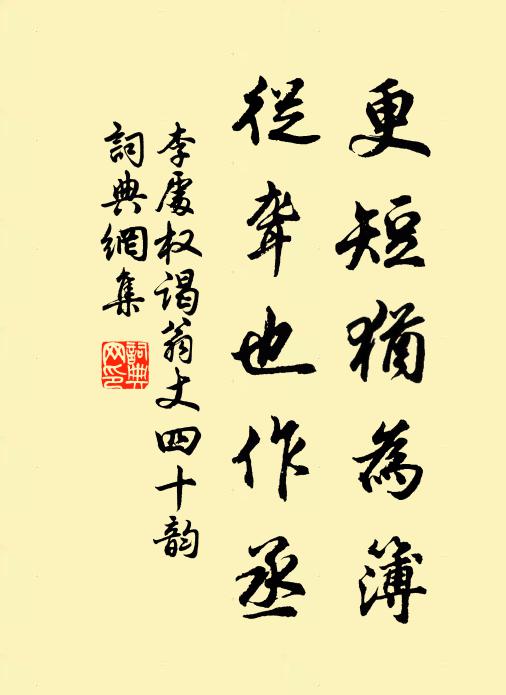 更短猶為簿
從聾也作丞
李處权謁翁丈四十韵
詞典網集
詞典網印